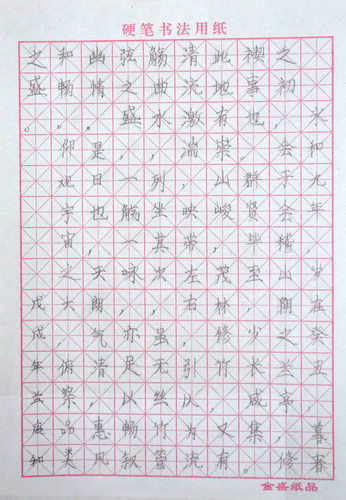 硬笔书法用纸
永和九年，岁在癸丑，暮春
之初，会于会稽山阴之兰亭，修
禊事也，群贤毕至，少长咸集。
此地有崇山峻，茂林修竹，又有
清流激湍，映带左右，引以为流
觞曲水，列坐其次，虽无丝竹管
弦之盛，一觞一咏，亦足以畅叙
幽情。是日也，天朗气清，惠风
和畅。仰观宇宙之大，俯察品类
之盛。
戊戌年
金盛纸品